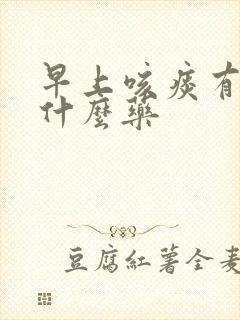 早上咳痰有
什麼藥
豆腐紅薯全麥